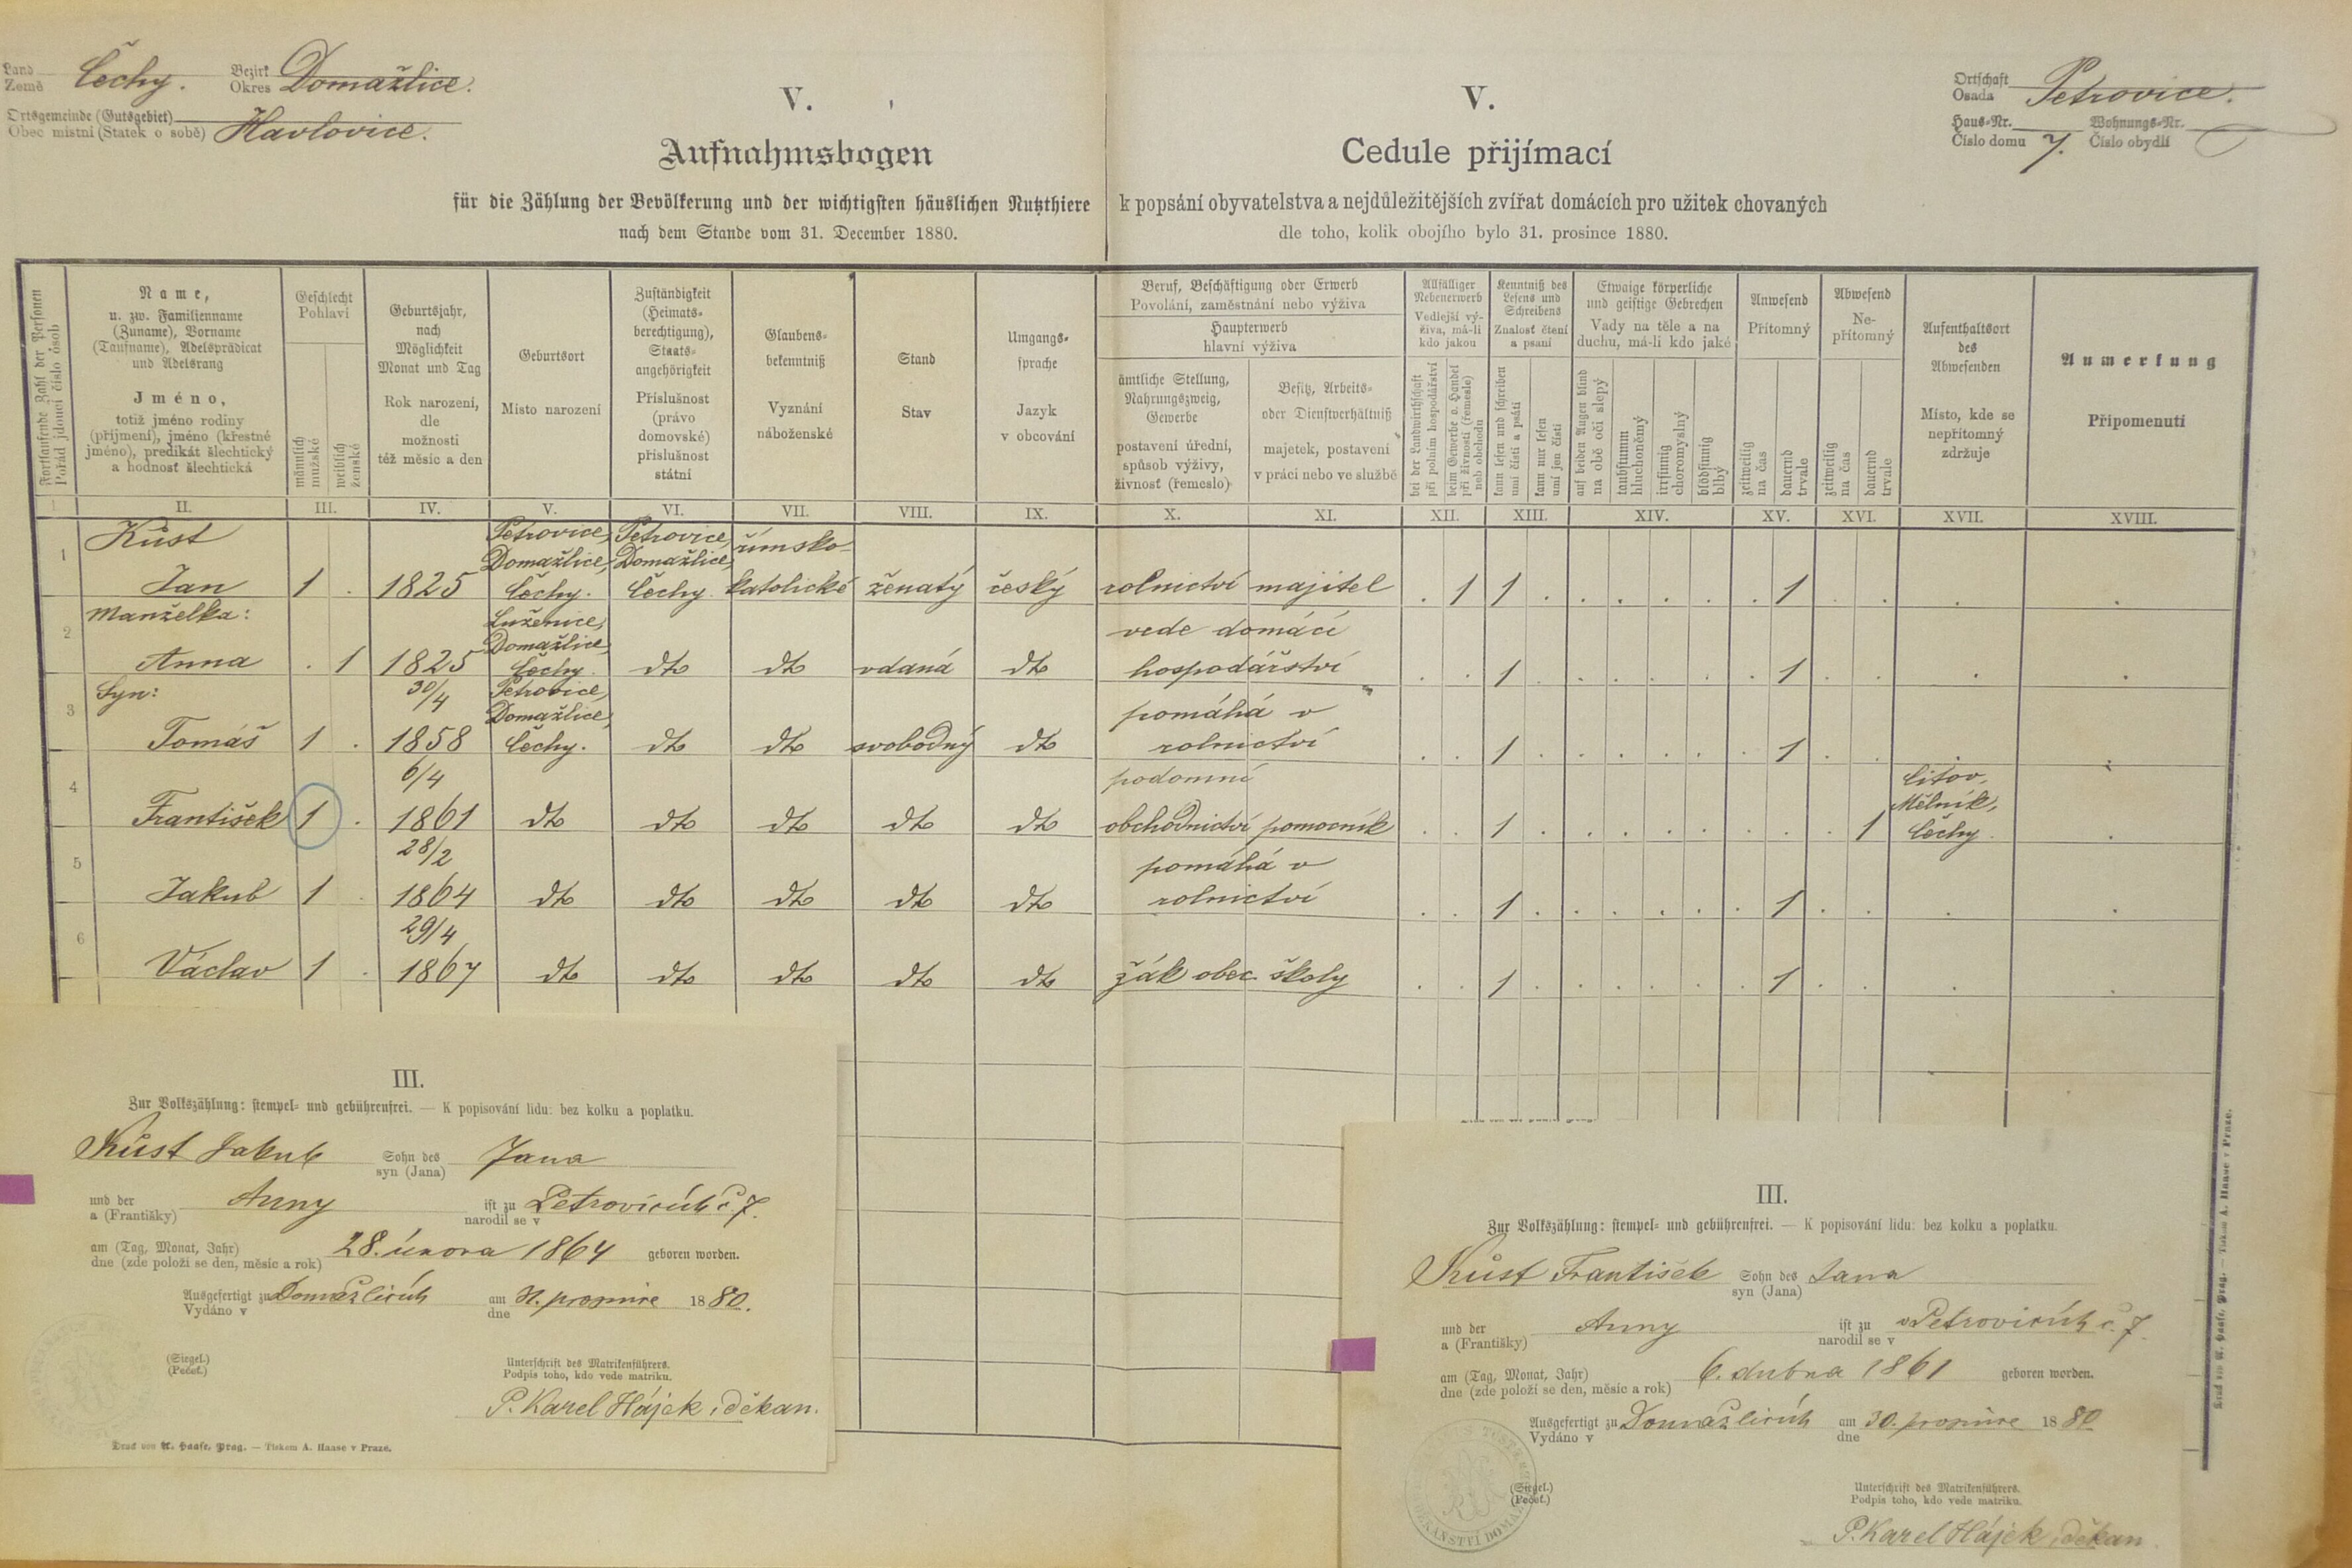 Land
Země Čechy. Bezirk
Okres Domažlice.
Ortsgemeinde (Gutsgebiet)
Obec místní (Statek o sobě) Havlovice.
V.
Aufnahmsbogen
für die Zählung der Bevölkerung und der wichtigsten häuslichen Nutzthiere
nach dem Stande vom 31. December 1880.
V.
Cedule přijímací
k popsání obyvatelstva a nejdůležitějších zvířat domácích pro užitek chovaných
dle toho, kolik obojího bylo 31. prosince 1880.
Ortschaft
Osada Petrovice.
Haus-Nr.
Číslo domu 7.
Wohnungs-Nr.
Číslo obydlí
Fortlaufende Zahl der Personen
Pořád jdoucí číslo osob
Name,
u. zw. Familienname
(Zuname), Vorname
(Taufname), Adelsprädicat
und Adelsrang
Jméno,
totiž jméno rodiny
(příjmení), jméno (křestné
jméno), predikát šlechtický
a hodnosť šlechtická
Geschlecht
Pohlaví
männlich
mužské
weiblich
ženské
Geburtsjahr,
nach
Möglichkeit
Monat und Tag
Rok narození,
dle
možnosti
též měsíc a den
Geburtsort
Místo narození
Zuständigkeit
(Heimats-
berechtigung),
Staats-
angehörigkeit
Příslušnost
(právo
domovské)
příslušnost
státní
Glaubens-
bekenntniß
Vyznání
náboženské
Stand
Stav
Umgangs-
sprache
Jazyk
v obcování
Beruf, Beschäftigung oder Erwerb
Povolání, zaměstnání nebo výživa
Haupterwerb
hlavní výživa
ämtliche Stellung,
Nahrungszweig,
Gewerbe
postavení úřední,
spůsob výživy,
živnosť (řemeslo)
Besitz, Arbeits-
oder Dienstverhältniß
majetek, postavení
v práci nebo ve službě
Allfälliger
Nebenerwerb
Vedlejší vý-
živa, má-li
kdo jakou
bei der Landwirthschaft
při polním hospodářství
beim Gewerbe o. Handel
při živnosti (řemesle)
neb obchodu
Kenntniß des
Lesens und
Schreibens
Znalosť čtení
a psaní
kann lesen und schreiben
umí čísti a psáti
kann nur lesen
umí jen čísti
Etwaige körperliche
und geistige Gebrechen
Vady na těle a na
duchu, má-li kdo jaké
auf beiden Augen blind
na obě oči slepý
taubstumm
hluchoněmý
irrsinnig
choromyslný
blödsinnig
blbý
Anwesend
Přítomný
zeitweilig
na čas
dauernd
trvale
Abwesend
Ne-
přítomný
zeitweilig
na čas
dauernd
trvale
Aufenthaltsort
des
Abwesenden
Místo, kde se
nepřítomný
zdržuje
Anmerkung
Připomenutí
I. II. III. IV. V. VI. VII. VIII. IX. X. XI. XII. XIII. XIV. XV. XVI. XVII. XVIII.
Kůst Petrovice, Petrovice, římsko-
Domažlice, Domažlice,
1 Jan 1 . 1825 Čechy. Čechy. katolické ženatý český rolnictví majitel . 1 1 . . . . . . 1 . . . .
Manželka: Luženice, vede domácí
Domažlice,
2 Anna . 1 1825 Čechy. dto dto vdaná dto hospodářství . . 1 . . . . . . 1 . . . .
Syn: 30/4 Petrovice, pomáhá v
Domažlice,
3 Tomáš 1 . 1858 Čechy. dto dto svobodný dto rolnictví . . 1 . . . . . . 1 . . . .
6/4 podomní Citov,
Mělník,
4 František 1 . 1861 dto dto dto dto dto obchodnictví pomocník . . 1 . . . . . . . . 1 Čechy. .
28/2 pomáhá v
5 Jakub 1 . 1864 dto dto dto dto dto rolnictví . . 1 . . . . . . 1 . . . .
29/4
6 Václav 1 . 1867 dto dto dto dto dto žák obec. školy . . 1 . . . . . . 1 . . . .
III.
Zur Volkszählung: stempel- und gebührenfrei. — K popisování lidu: bez kolku a poplatku.
Kůst Jakub Sohn des
syn (Jana) Jana
und der
a (Františky) Anny ist zu
narodil se v Petrovicích č. 7.
am (Tag, Monat, Jahr)
dne (zde položí se den, měsíc a rok) 28. února 1864 geboren worden.
Ausgefertigt zu
Vydáno v Domažlicích am
dne 31. prosince 1880.
(Siegel.)
(Pečeť.)
Unterschrift des Matrikenführers.
Podpis toho, kdo vede matriku.
P. Karel Hájek, děkan.
Druck von A. Haase, Prag. — Tiskem A. Haase v Praze.
III.
Zur Volkszählung: stempel- und gebührenfrei. — K popisování lidu: bez kolku a poplatku.
Kůst František Sohn des
syn (Jana) Jana
und der
a (Františky) Anny ist zu
narodil se v v Petrovicích č. 7.
am (Tag, Monat, Jahr)
dne (zde položí se den, měsíc a rok) 6. dubna 1861 geboren worden.
Ausgefertigt zu
Vydáno v Domažlicích am
dne 30. prosince 1880
(Siegel.)
(Pečeť.)
Unterschrift des Matrikenführers.
Podpis toho, kdo vede matriku.
P. Karel Hájek, děkan
Druck von A. Haase, Prag. — Tiskem A. Haase v Praze.